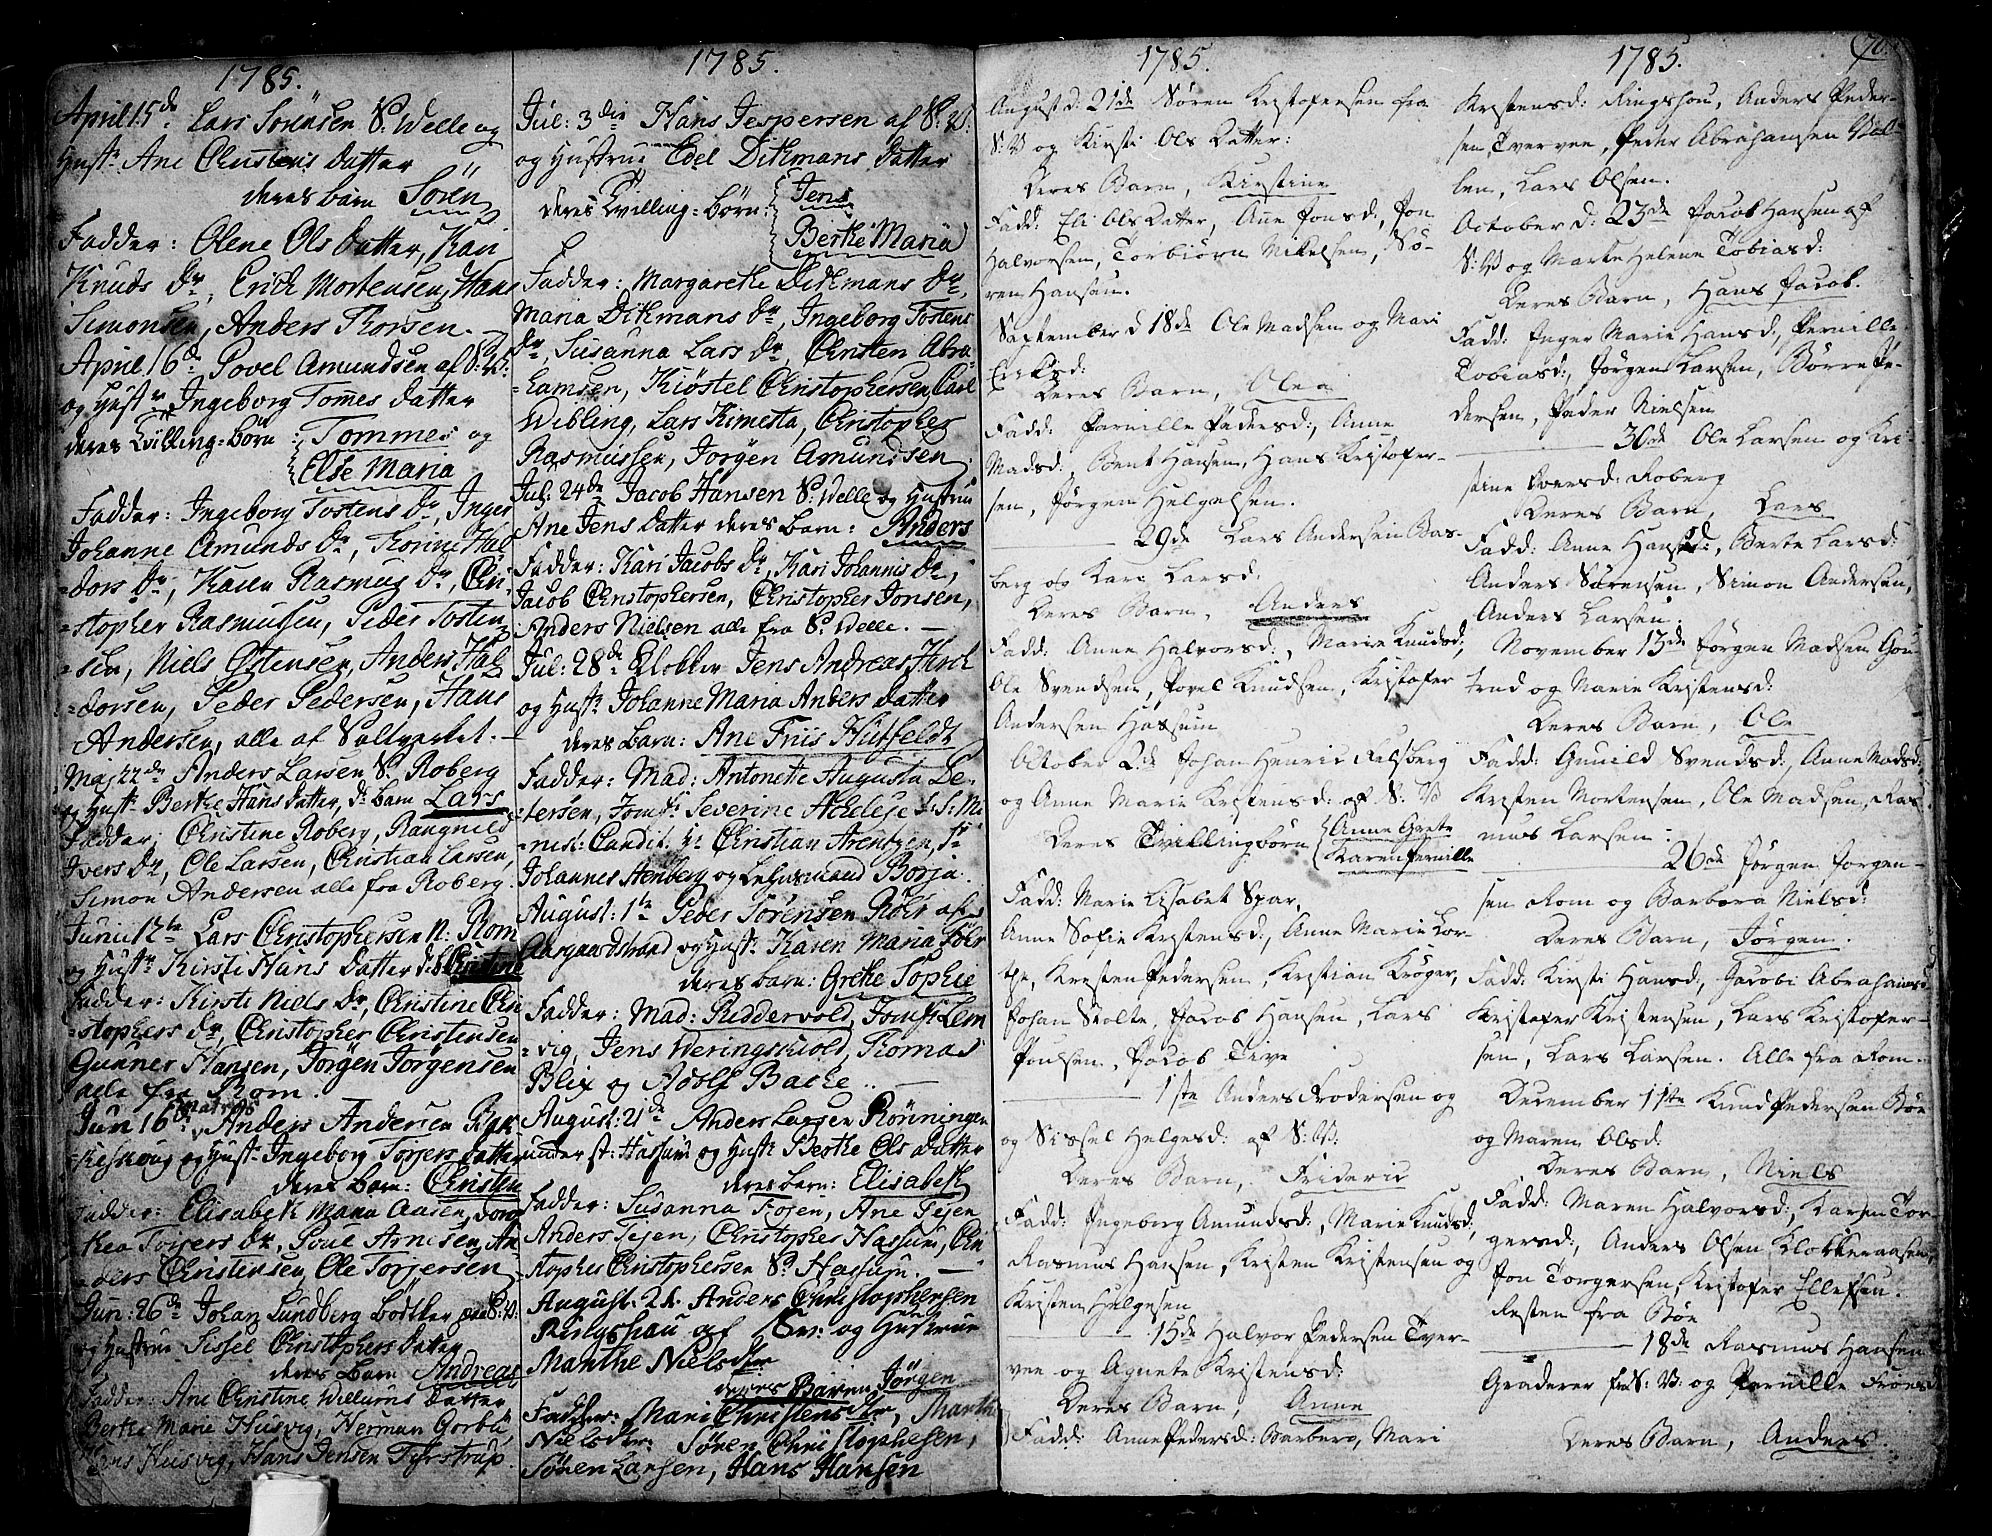 1785.
April 15de Lars Sörnsen S: Welle og
Hustr: Ane Christens datter
deres barn Sören
Fadder: Olene Ols datter, Kari
Knuds Dr, Erich Mortensen, Hans
Simonsen, Anders Thorsen.
April 16de Povel Amundsen af S: V:
og Hustr Ingeborg Tomes datter
deres Tvilling-börn: Tommes og
Else Maria
Fadder: Ingeborg Tostens Dr, Inger
Johanne Amunds Dr, Thorine Hal
-dors Dr, Karen Rasmus Dr, Chri
-stopher Rasmussen, Peder Tosten
-sen, Niels Östensen, Anders Hal
-dorsen, Peder Pedersen, Hans
Andersen, alle af Saltverket.
Maj 22de Anders Larsen S: Roberg
og Hustr: Berthe Hans datter, D: barn Lars
Fadder: Christine Roberg, Rangnild
Ivers Dr, Ole Larsen, Christian Larsen,
Simon Andersen alle fra Roberg.
Junii 12te Lars Christophersen N: Rom
og Hustr Kirsti Hans datter d: b: Christine
Fadder: Kirsti Niels Dr, Christine Chri
-stophers Dr, Christopher Christensen
Gunner Hansen, Jörgen Jörgensen
alle fra Rom.
Jun 16de Matros Anders Andersen Rak
-keskoug og Hustr: Ingeborg Torgers datter
deres barn: Christen
Fadder: Elisabeth Maria Aasen, Doro
-thea Torgers Dr, Poul Arnesen, An
-ders Christensen, Ole Torjersen
Jun: 26de Johan Lundberg Bödtker ved S: V:
og Hustrue Sissel Christophers datter
deres barn Andreas
Fadder: Ane Christine Willums datter
Berthe Marie Husvig, Herman Gorbu,
Hans Husvig, Hans Jensen Tyrstrup.
1785.
Jul: 3die Hans Jespersen af S: V:
og Hustrue Edel Ditmans datter
deres Tvilling-börn: Jens
Berthe Maria
Fadder: Margarethe Ditmans Dr,
Maria Ditmans Dr, Ingeborg Tostens
Dr, Susanna Lars Dr, Christen Abra-
-hamsen, Kiöstel Christophersen, Carl
Wibling, Lars Kimesta, Christopher
Rasmussen, Jörgen Amundsen
Jul: 24de Jacob Hansen S: Welle og Hustrue
Ane Jens datter deres barn: Anders
Fadder: Kari Jacobs Dr, Kari Johannis Dr,
Jacob Christophersen, Christopher Jonsen,
Anders Nielsen alle fra S: Welle.
Jul: 28de Klokker Jens Andreas Hirch
og Hustr: Johanne Maria Anders datter
deres barn: Ane Friis Hutfeldt
Fadder: Mad: Antonette Augusta Pe-
-tersen, Jomfr: Severine Adeleje S. S: Mi
-nist: Candit: Hr Christian Arentzen, Sr
Johannes Stenberg og Lehnsmand Borja.
August: 1te Peder Sörensen Röhr af
Aasgaardstrand og Hustr: Karen Maria Föhr
deres barn: Grethe Sophie
Fadder: Mad: Riddervold, Jomfr: Lem
-vig, Jens Weringskiold, Thomas
Blix og Adolf Bache.
August: 21de Anders Larsen Rönningen
under st: Hassum og Hustr Berthe Ols datter
deres barn: Elisabeth
Fadder: Susanna Fojen, Ane Tejen
Anders Tejen, Christopher Hassum, Chri
stopher Christophersen S: Hassum.
August. 21. Anders Christophersen
Ringshau af Sem: og Hustrue
Marthe Nielsdtr
deres Baren Jörgen
Fadder: Mari Christensdtr, Marthe
Nielsdtr: Sören Christophesen,
Sören Larsen, Hans Hansen
1785.
August d: 21de Sören Kristofersen fra
S: V og Kirsti Ols Datter:
Deres Barn, Kirstine
Fadd: Eli Ols Datter, Anne Jonsd:, Jon
Halvorsen, Torbiörn Nikelsen, Sö-
ren Hansen.
September d 18de Ole Madsen og Mari
Eriksd:
Deres Barn, Olea
Fadd: Pernille Pedersd:, Anne
Madsd:, Bent Hansen, Hans Kristofer-
sen, Jörgen Helgesen.
29de Lars Andersen Bas-
berg og Kari Larsd:
Deres Barn, Anders
Fadd: Anne Halvorsd:, Marie Knudsd;
Ole Svendsen, Povel Knudsen, Kristofer
Andersen Hassum
October 2de Johan Henric Felsberg
og Anne Marie Kristensd: af S: V
Deres Tvillingbörn Anne Grete
Karen Pernille
Fadd: Marie Lisabet Spar,
Anne Sofie Kristensd:, Anne Marie Lor-
the, Kristen Pedersen, Kristian Kröger,
Johan Stolte, Jacob Hansen, Lars
Poulsen, Jacob Tive
1ste Anders Frodersen og
og Sissel Helgesd: af S: V:
Deres Barn, Frideric
Fadd: Ingeborg Amundsd:, Marie Knudsd;
Rasmus Hansen, Kristen Kristensen og
Kristen Helgesen
15de Halvor Pedersen Tver-
vee og Agnete Kristensd:
Deres Barn, Anne
Fadd: Anne Pedersd: Barberg, Mari
1785.
70.
Kristensd: Ringshou, Anders Peder-
sen, Tvervee, Peder Abrahamsen Vel-
len, Lars Olsen.
October d: 23de Jacob Hansen af
S: V og Marte Helene Tobiasd:
Deres Barn, Hans Jacob.
Fadd: Inger Marie Hansd:, Pernille
Tobiasd:, Jörgen Larsen, Börre Pe-
dersen, Peder Nielsen
30de Ole Larsen og Kri-
stine Iversd: Roberg
Deres Barn, Lars
Fadd: Anne Hansd:, Berte Larsd:
Anders Sörensen, Simon Andersen,
Anders Larsen.
November 13de Jörgen Madsen Gou-
trud og Marie Kristensd:
Deres Barn, Ole
Fadd: Gunild Svendsd:, Anne Madsd:,
Kristen Mortensen, Ole Madsen, Ras
mus Larsen
26de Jörgen Jorgen-
sen Rom og Barbara Nielsd:
Deres Barn, Jörgen.
Fadd: Kirsti Hansd:, Jacobi Abrahamsd
Kristofer Kristensen, Lars Kristofer-
sen, Lars Larsen. Alle fra Rom.
December 11te Knud Pedersen Böe
og Maren Olsd:
Deres Barn, Niels
Fadd: Maren Halvorsd:, Karen Tor-
gersd:, Anders Olsen Klokkeraasen,
Jon Torgersen, Kristofer Ellefsen.
Resten fra Böe
18de Rasmus Hansen
Graderer fr: S: V: og Pernille Troesd
Deres Barn, Anders.